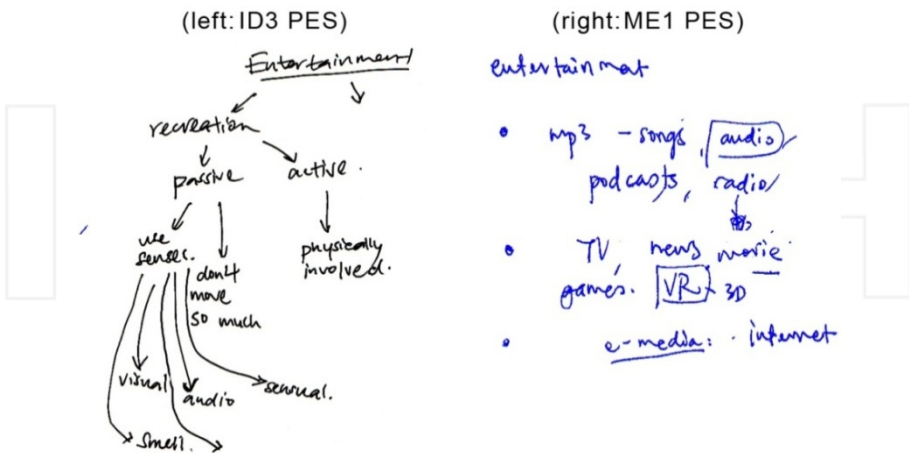 (left: ID3 PES)
Entertainment
recreation
passive
active.
use
senses.
don't
move
so much
physically
involved.
visual
audio
sensual.
smell.
(right: ME1 PES)
entertainmet
• mp3 - songs, audio
podcasts, radio
• TV, news movie
games. VR 3D
• e-media: · internet